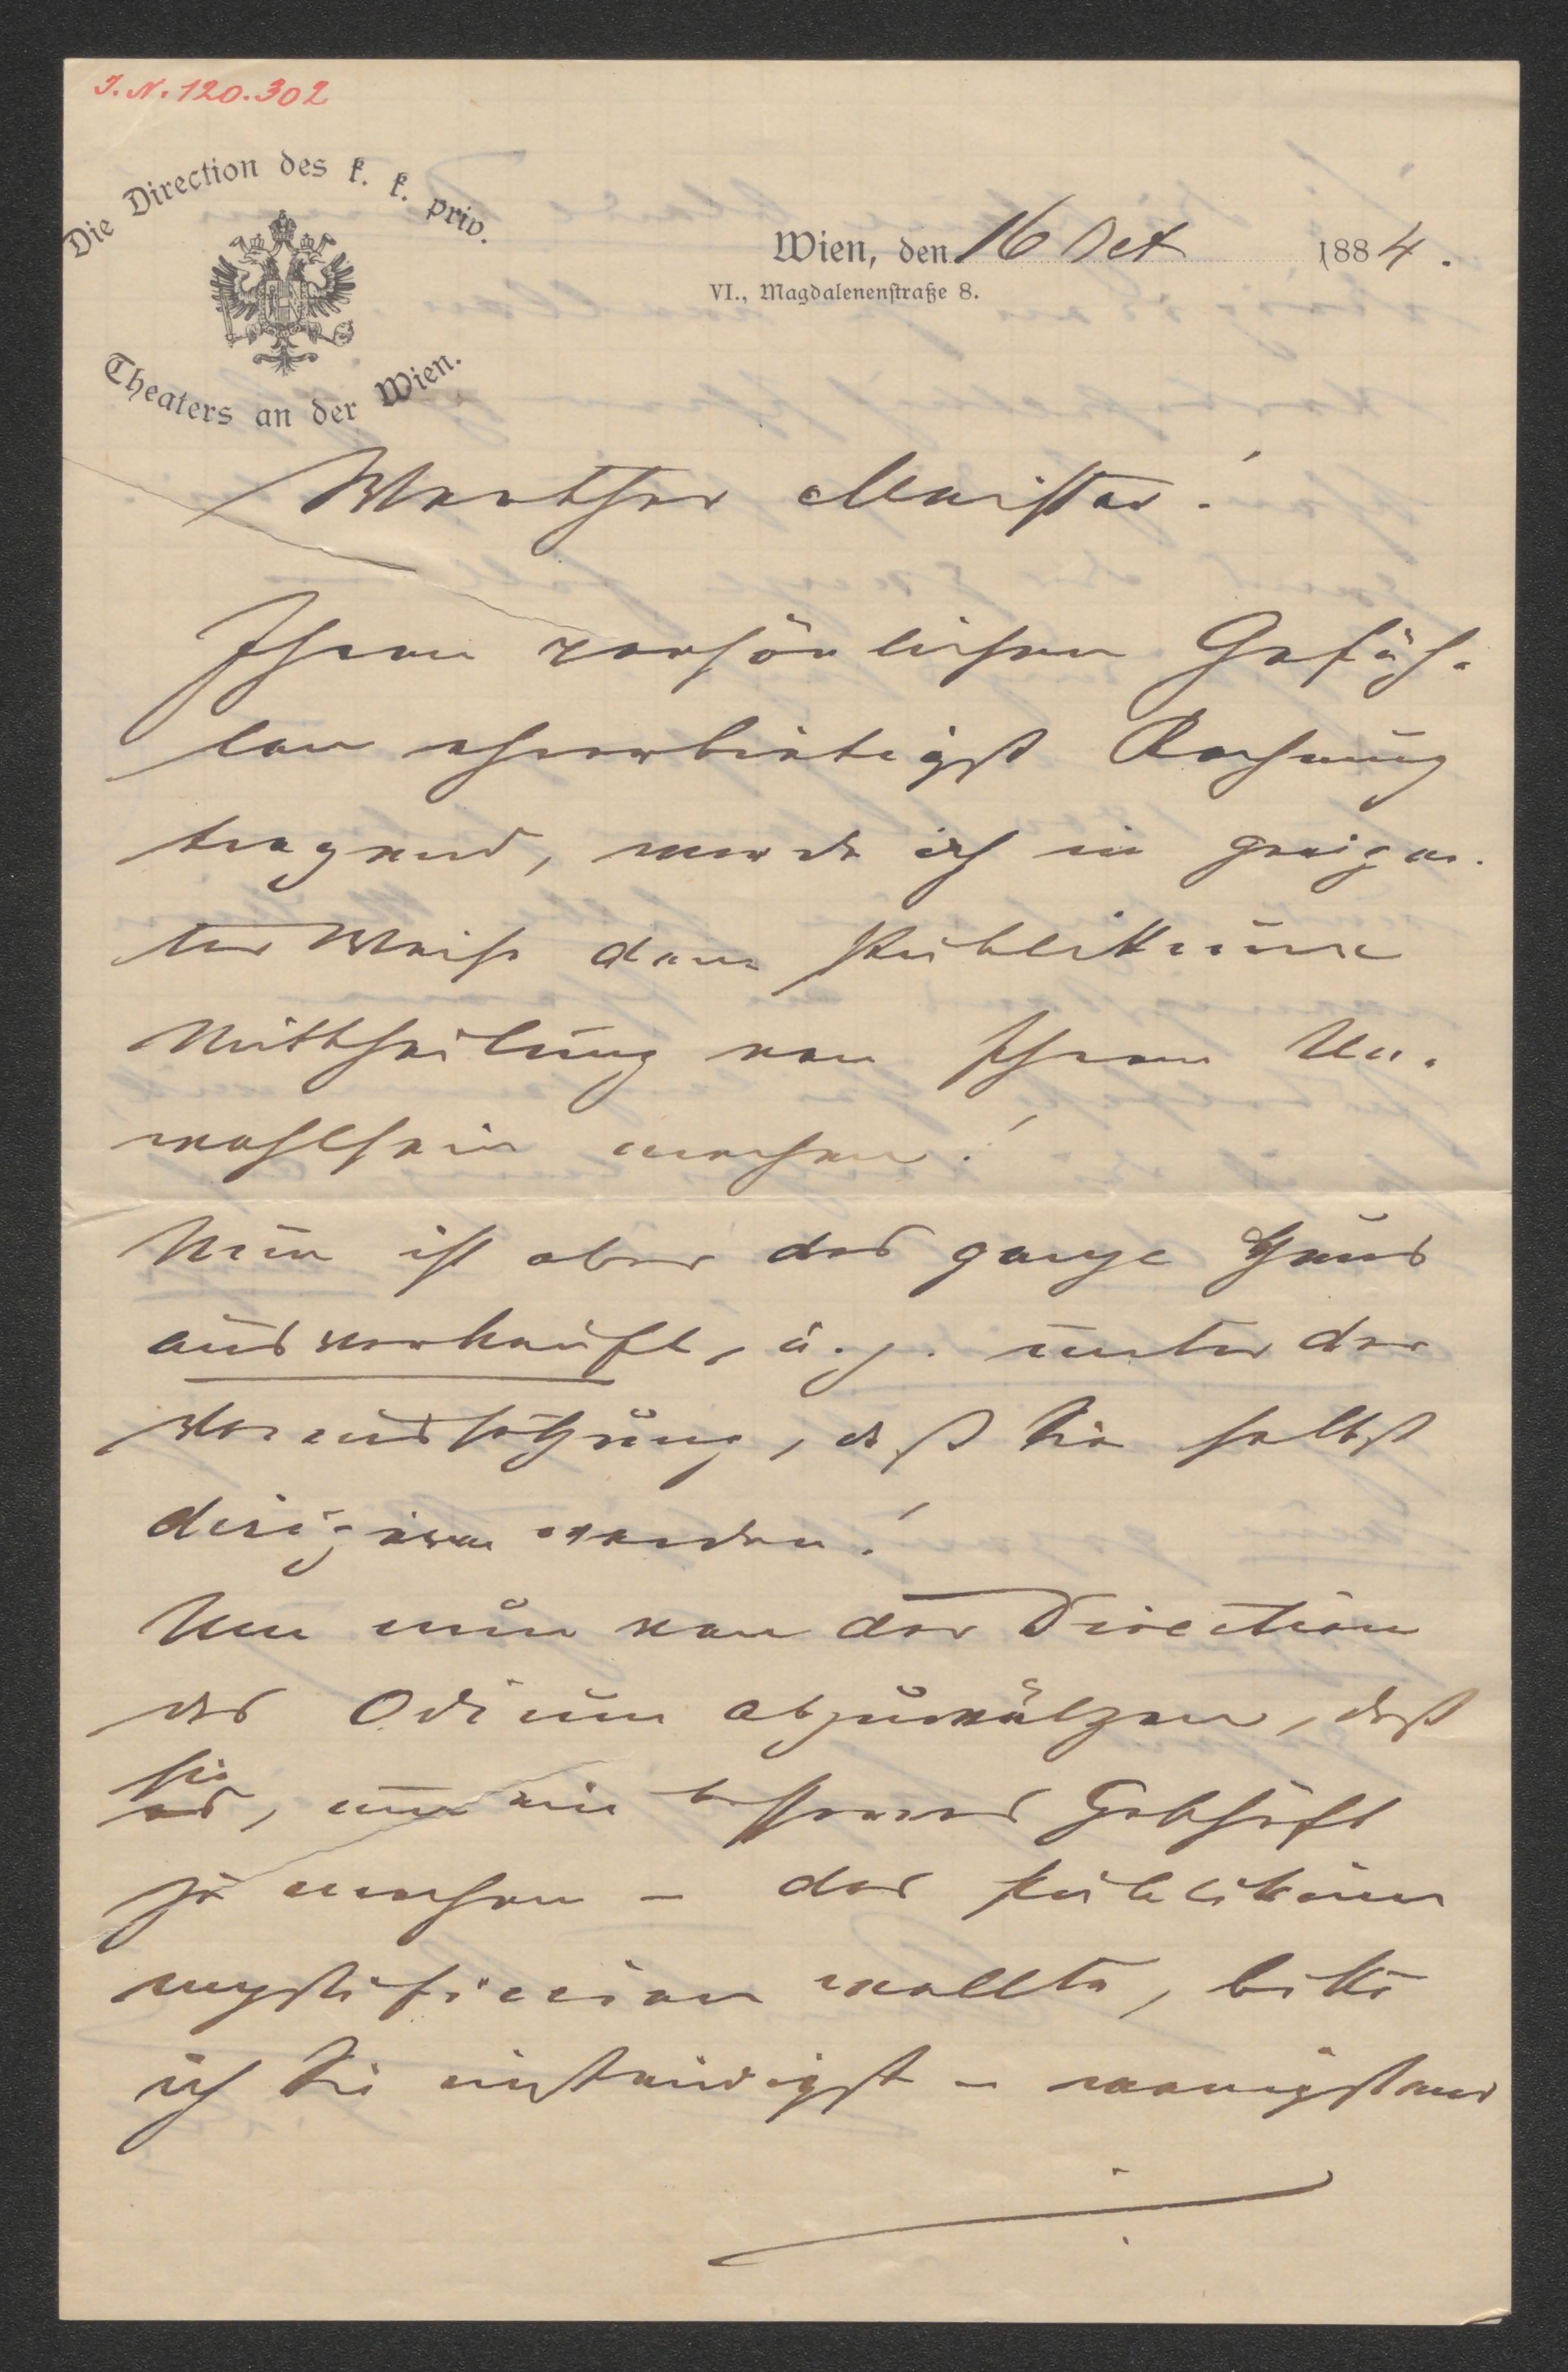 J. N. 120.302
Die Direction des k. k. priv.
Theaters an der Wien.
Wien, den 16 Oct 1884.
VI., Magdalenenstraße 8.
Werther Meister!
Ihren persönlichen Gefüh-
len ehrerbietigst Rechnung
tragend, werde ich in geeigne-
ter Weise dem Publikum
Mittheilung von Ihrem Un-
wohlsein machen!
Nun ist aber das ganze Haus
ausverkauft, u. z. unter der
Voraussetzung, daß Sie selbst
dirigiren werden!
Um nun von der Direction
das Odium abzuwälzen, daß
sie
es, um ein besseres Geschäft
zu machen – das Publikum
mystificiren wollte, bitte
ich Sie inständigst – wenigstens